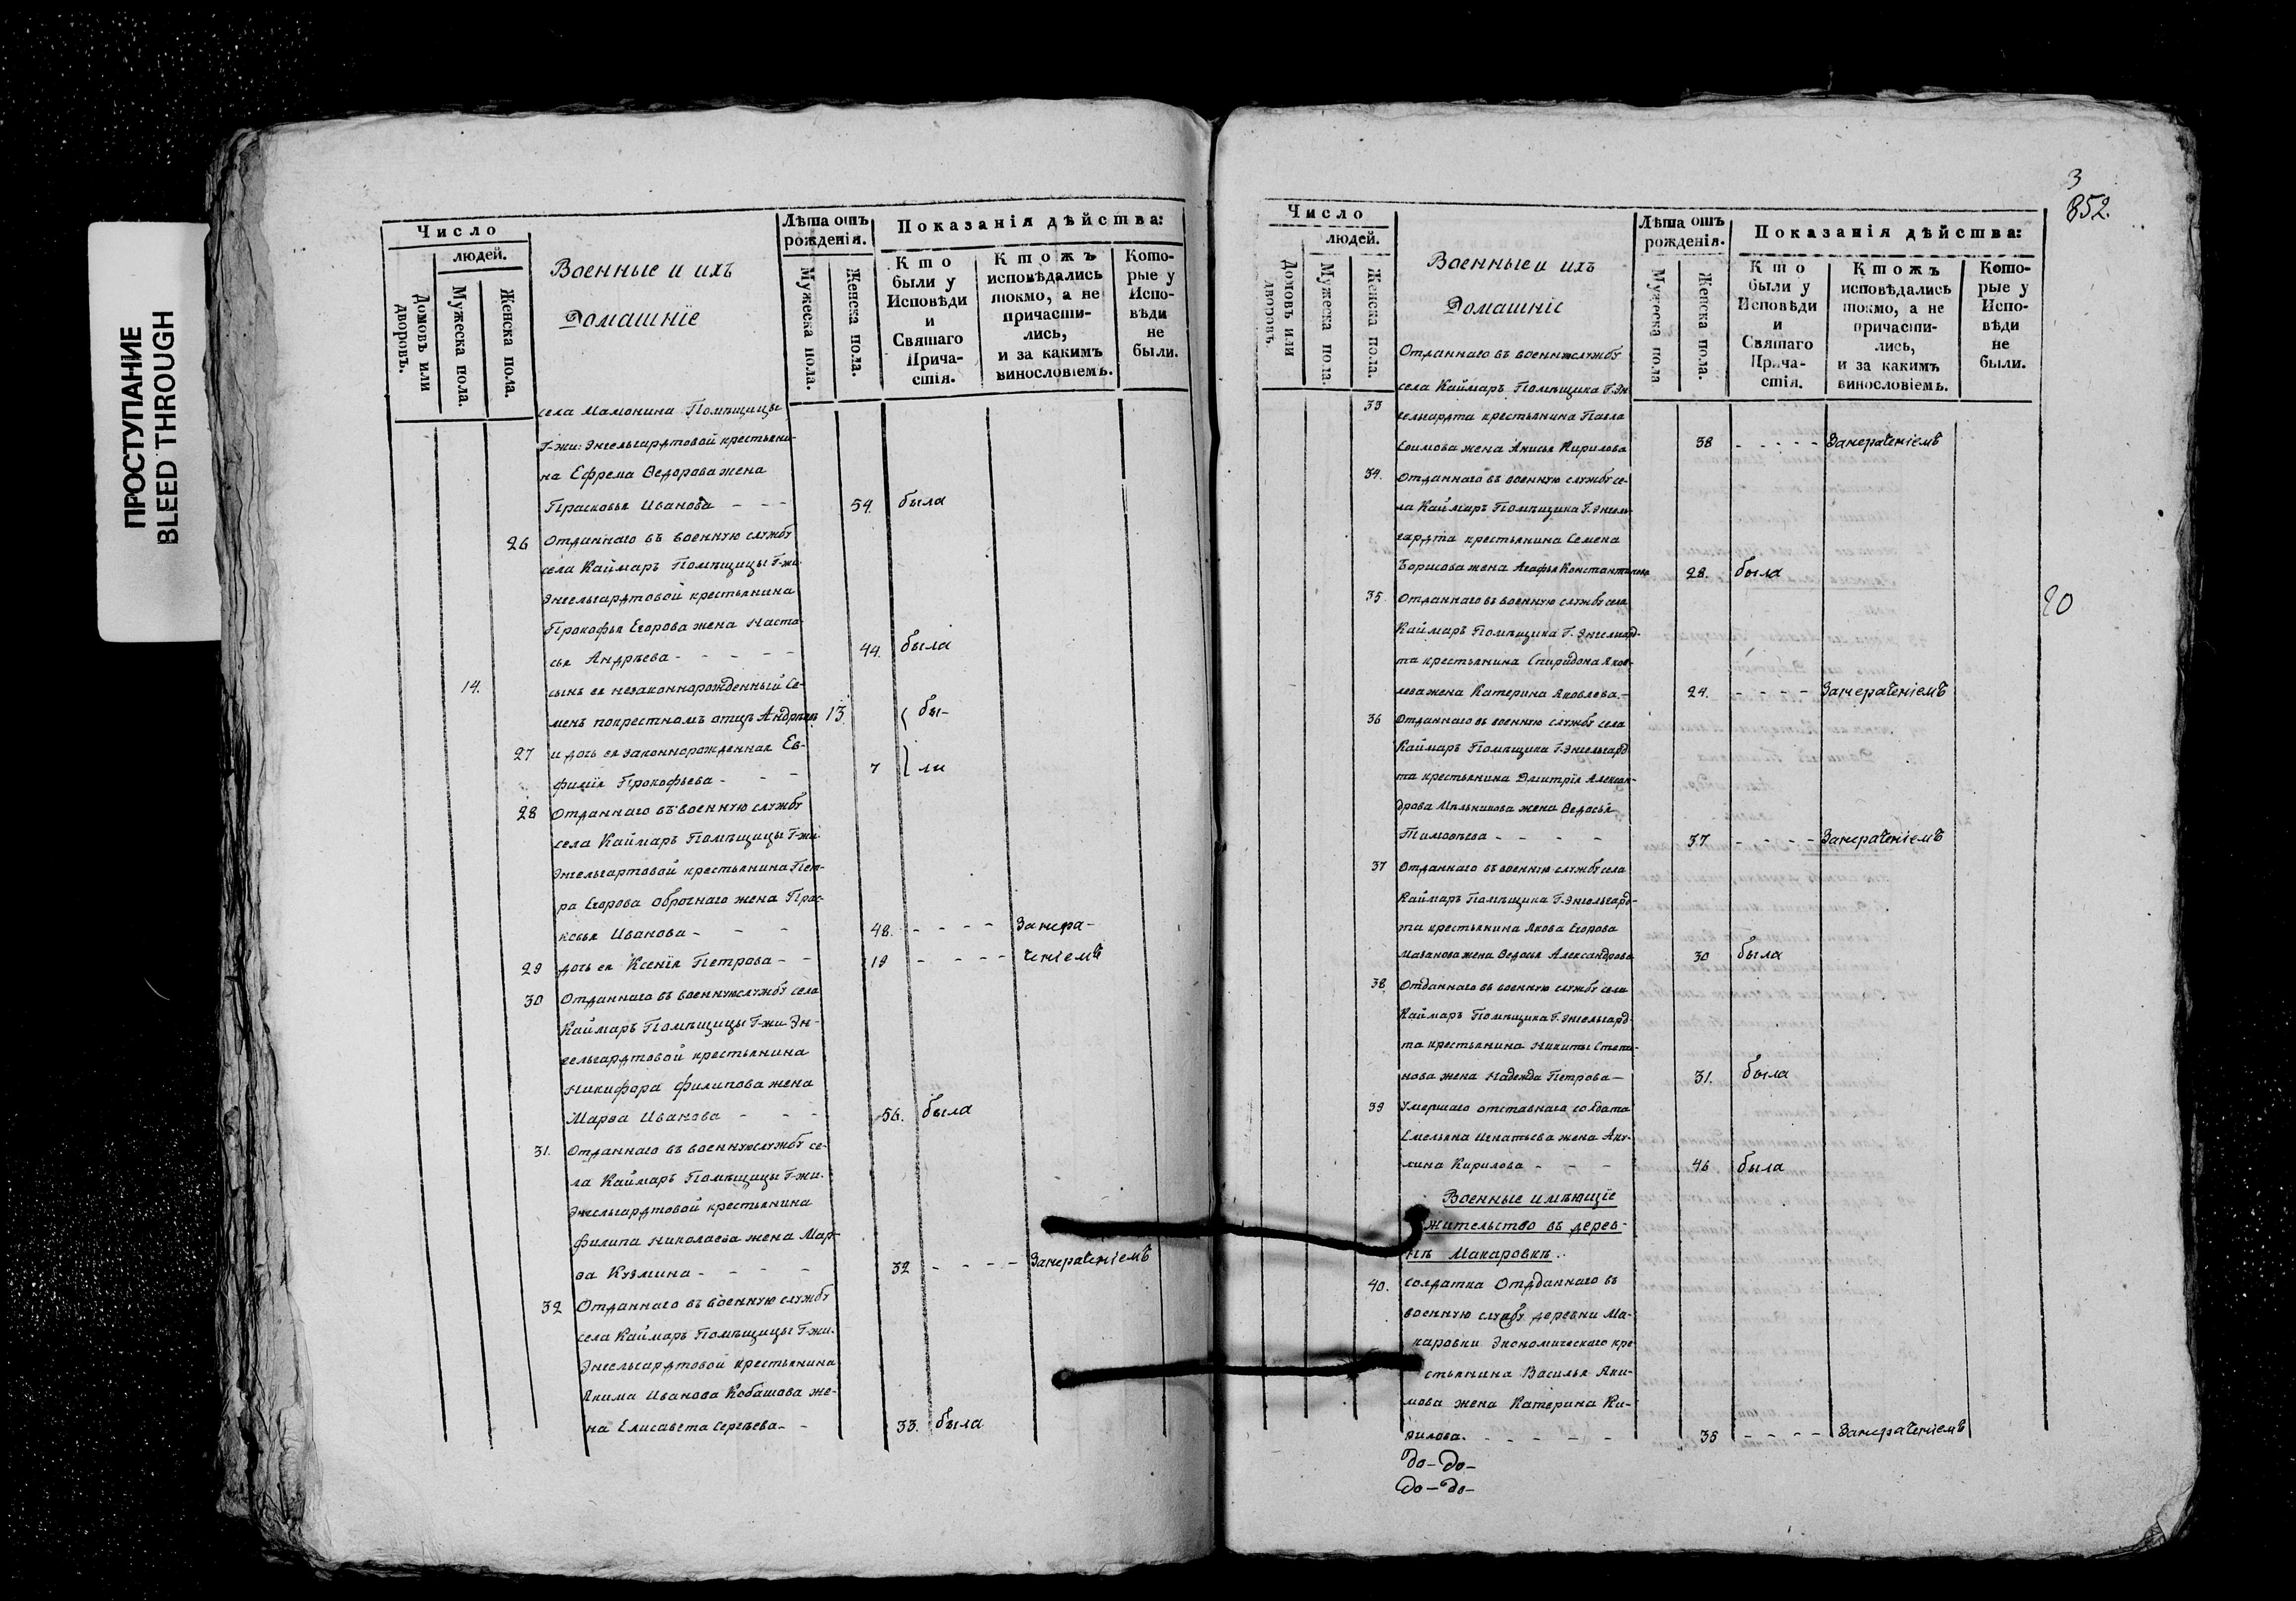 ПРОСТУПАНИЕ
BLEED THROUGH
Число
людей.
Домовъ или дворовъ.
Мужеска пола.
Женска пола.
Военные и ихъ
Домашніе
Лѣта отъ рожденія.
Мужеска пола.
Женска пола.
Показанія дѣйства:
Кто были у Исповѣди и Святаго Прича-стія.
Ктожъ исповѣдались токмо, а не причасти-лись, и за какимъ винословіемъ.
Кото-рые у Испо-вѣди не были.
села Мамонина Помѣщицы
Г-жи: Энгельгардтовой крестьяни-
на Ефрема Ѳедорова жена
Прасковья Иванова - - - 54. была
26 Отданнаго въ военную службу
села Каймаръ Помѣщицы Г-жи
Энгельгардтовой крестьянина
Прокофья Егорова жена Наста-
сья Андреева - - - - - 44. была
14. сынъ ея незаконнорожденный Се-
менъ покрестномъ отцѣ Андреевъ 13. бы-
27 и дочь ея законнорожденная Ев-
фимія Прокофьева - - - 7 ли
28 Отданнаго въ военную службу
села Каймаръ Помѣщицы Г-жи
Энгельгартовой крестьянина Пет-
ра Егорова Оброчнаго жена Прас-
ковья Иванова - - - 48. - - - - Занера-
29 дочь ея Ксенія Петрова - - 19 - - - - ченіемъ
30 Отданнаго въ военную службу села
Каймаръ Помѣщицы Г-жи Эн-
гельгардтовой крестьянина
Никифора Филипова жена
Марѳа Иванова - - - 56. была
31. Отданнаго въ военную службу се-
ла Каймаръ Помѣщицы Г-жи.
Энгельгардтовой крестьянина
Филипа Николаева жена Мар-
ѳа Кузмина - - - - 32 - - - - Занераченіемъ
32 Отданнаго въ военную службу
села Каймаръ Помѣщицы Г-жи.
Энгельгардтовой крестьянина
Якима Иванова Кобашова же-
на Елисавета Сергѣева - - 33. была
3
852.
Число
людей.
Домовъ или дворовъ.
Мужеска пола.
Женска пола.
Военные и ихъ
Домашніе
Лѣта отъ рожденія.
Мужеска пола
Женска пола.
Показанія дѣйства:
Кто были у Исповѣди и Святаго Прича-стія.
Ктожъ исповѣдались токмо, а не причасти-лись, и за какимъ винословіемъ.
Кото-рые у Испо-вѣди не были.
Отданнаго въ военную службу
села Каймаръ Помѣщика Г. Эн
33 гельгардта крестьянина Павла
Еѳимова жена Анисья Кирилова 38 - - - - - Занераченіемъ
34. Отданнаго въ военную службу се-
ла Каймаръ Помѣщика Г. Энгель-
гардта крестьянина Семена
Борисова жена Агафья Константинова 28. была
35. Отданнаго въ военную службу села
20
Каймаръ Помѣщика Г. Энгельгард-
та крестьянина Спиридона Яков-
лева жена Катерина Яковлева. - 24. - - - - Занераченіемъ
36 Отданнаго въ военную службу села
Каймаръ Помѣщика Г. Энгельгард
та крестьянина Дмитрія Алексан-
дрова Мѣльникова жена Ѳедосья
Тимоѳеева - - - - 37. - - - - Занераченіемъ
37 Отданнаго въ военную службу села
Каймаръ Помѣщика Г. Энгельгард-
та крестьянина Якова Егорова
жена Ѳедосья Александрова 30 была
38. Отданнаго въ военную службу села
Каймаръ Помѣщика Г. Энгельгард-
та крестьянина Никиты Степа-
нова жена Надежда Петрова - 31. была
39 Умершаго отставнаго солдата
Емельяна Игнатьева жена Аку-
лина Кирилова - - - 46 была
Военные имѣющіе
жительство въ дерев-
нѣ Макаровкѣ.
40. солдатка Отданнаго въ
военную службу деревни Ма-
каровки Экономическаго кре
стьянина Василья Яки-
мова жена Катерина Ки-
рилова. - - - - - 35 - - - - Занераченіемъ
До-до-
До-до-